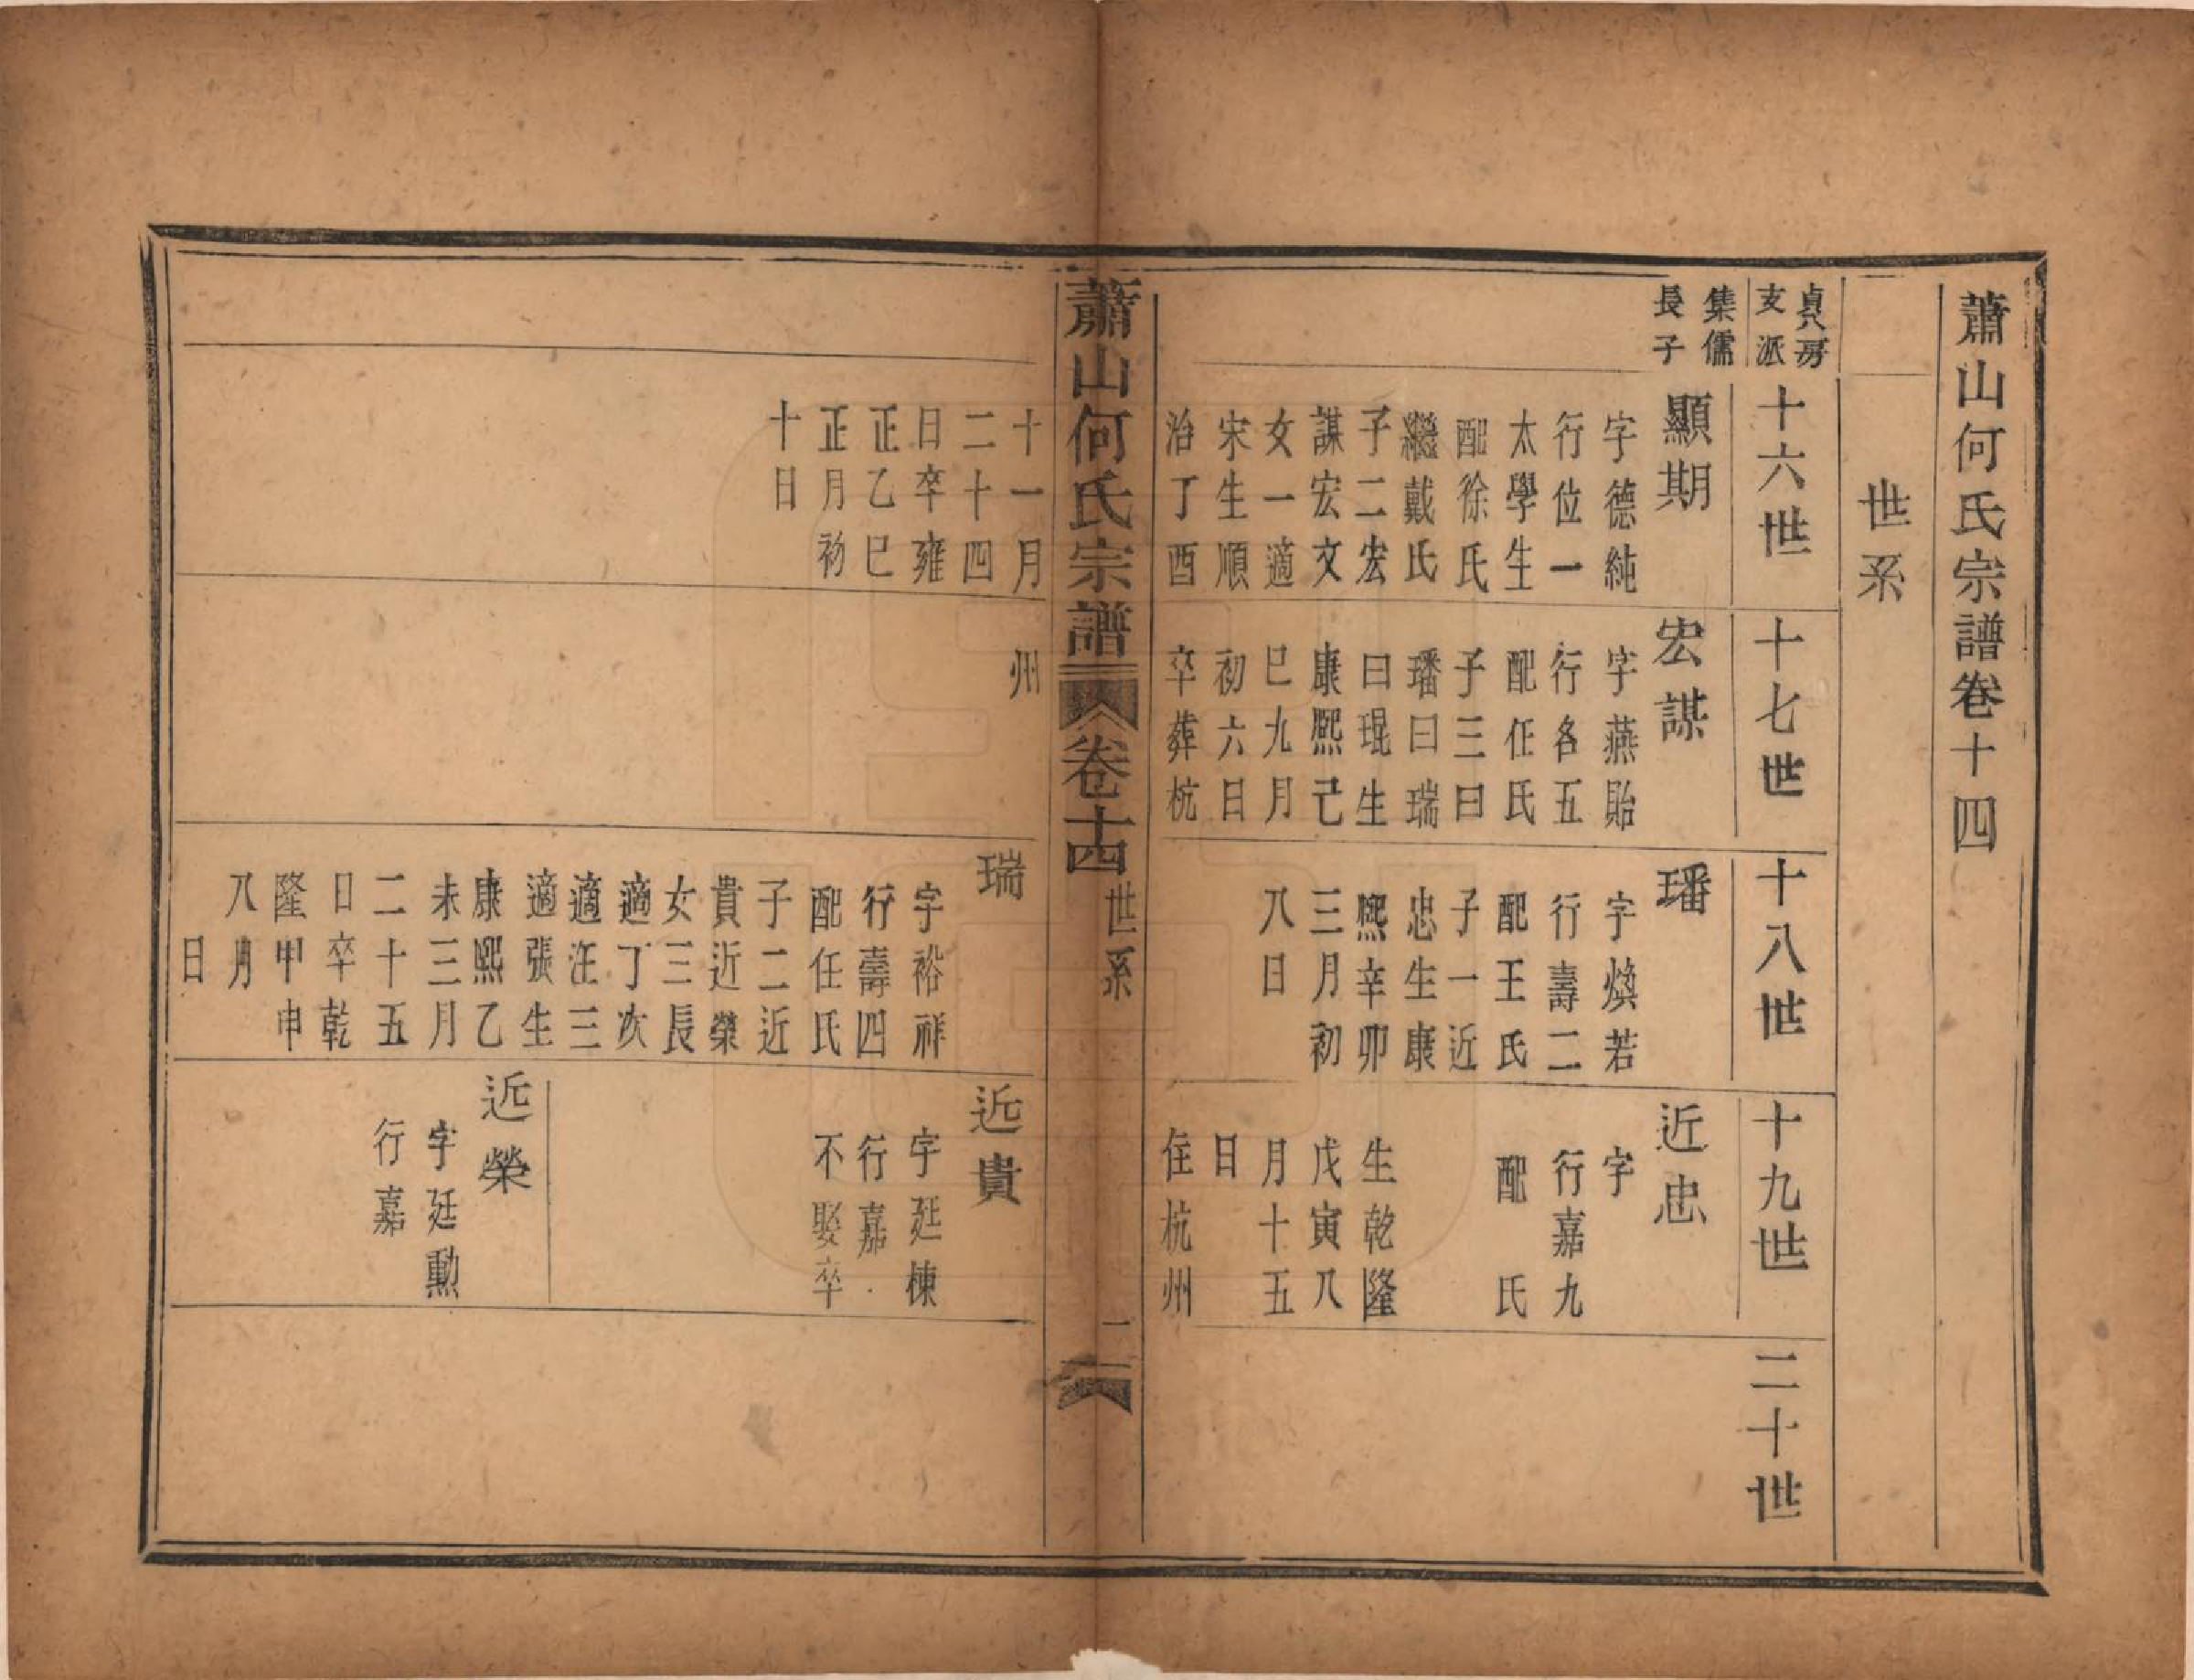 蕭山何氏宗譜卷十四
世系
貞房
支派
十六世
十七世
十八世
十九世
二十世
集儒
長子
顯期
字德純
行位一
太學生
配徐氏
繼戴氏
子二宏
謀宏文
女一適
宋生順
治丁酉
宏謀
字燕貽
行各五
配任氏
子三曰
璠曰瑞
曰琨生
康熙己
巳九月
初六日
卒葬杭
璠
字煥若
行壽二
配王氏
子一近
忠生康
熙辛卯
三月初
八日
近忠
字
行嘉九
配 氏
生乾隆
戊寅八
月十五
日
住杭州
蕭山何氏宗譜
卷十四
世系
二
十一月
二十四
日卒雍
正乙巳
正月初
十日
州
瑞
字裕祥
行壽四
配任氏
子二近
貴近榮
女三長
適丁次
適汪三
適張生
康熙乙
未三月
二十五
日卒乾
隆甲申
八月
日
近貴
字廷棟
行嘉
不娶卒
近榮
字廷勳
行嘉